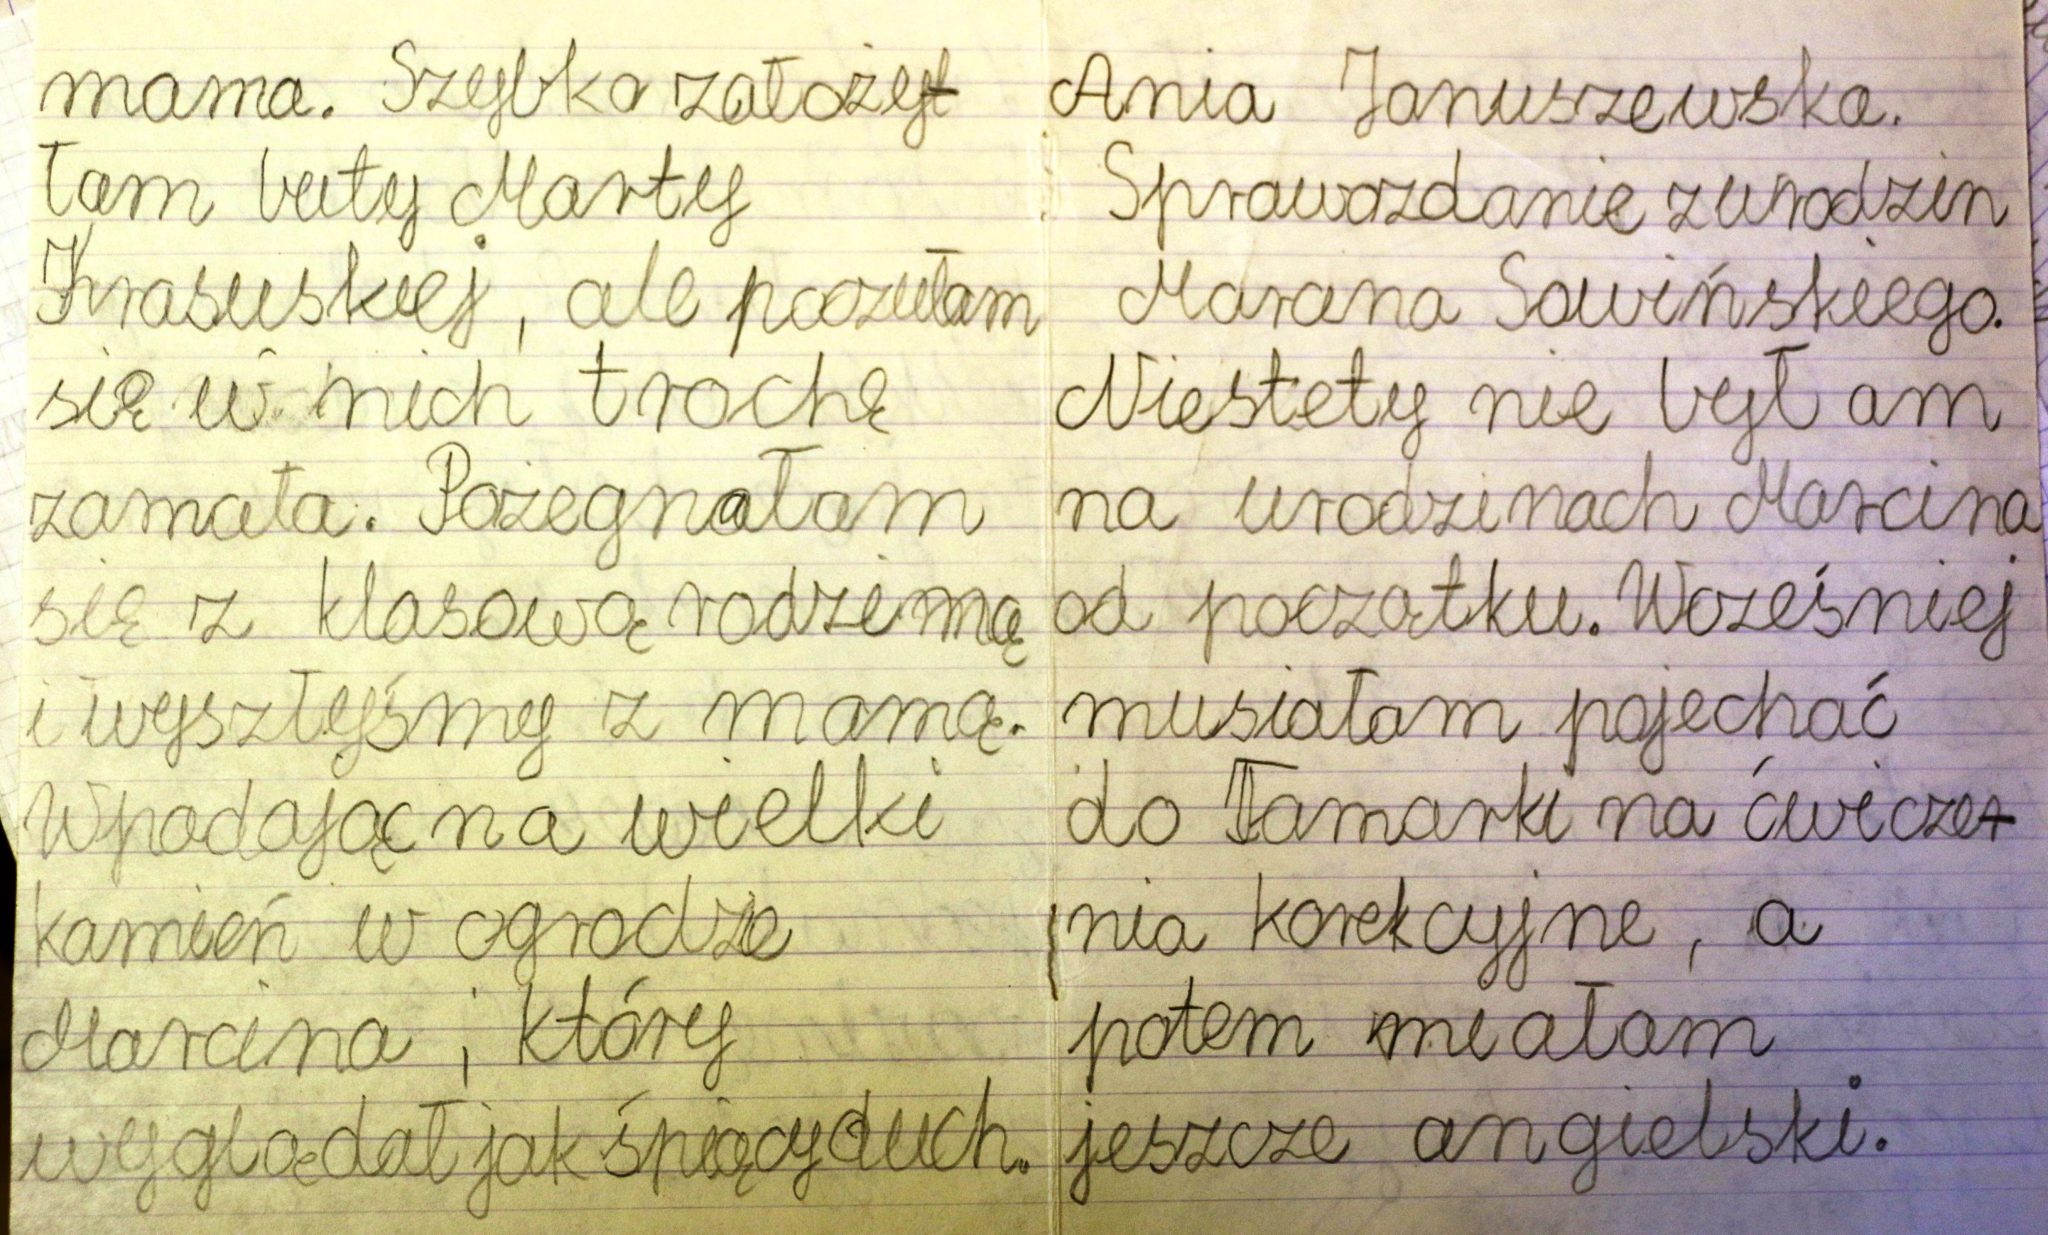 mama. Szybko założy-
łam buty Marty
Krasuskiej, ale poczułam
się w nich trochę
zamała. Pożegnałam
się z klasową rodziną
i wyszłyśmy z mamą.
Wpadając na wielki
kamień w ogrodzie
Marcina, który
wyglądał jak śpiący duch.
Ania Januszewska.
Sprawozdanie z urodzin
Marcina Sowińskiego.
Niestety nie był am
na urodzinach Marcina
od początku. Wcześniej
musiałam pojechać
do Tamarki na ćwicze-
nia korekcyjne, a
potem miałam
jeszcze angielski.